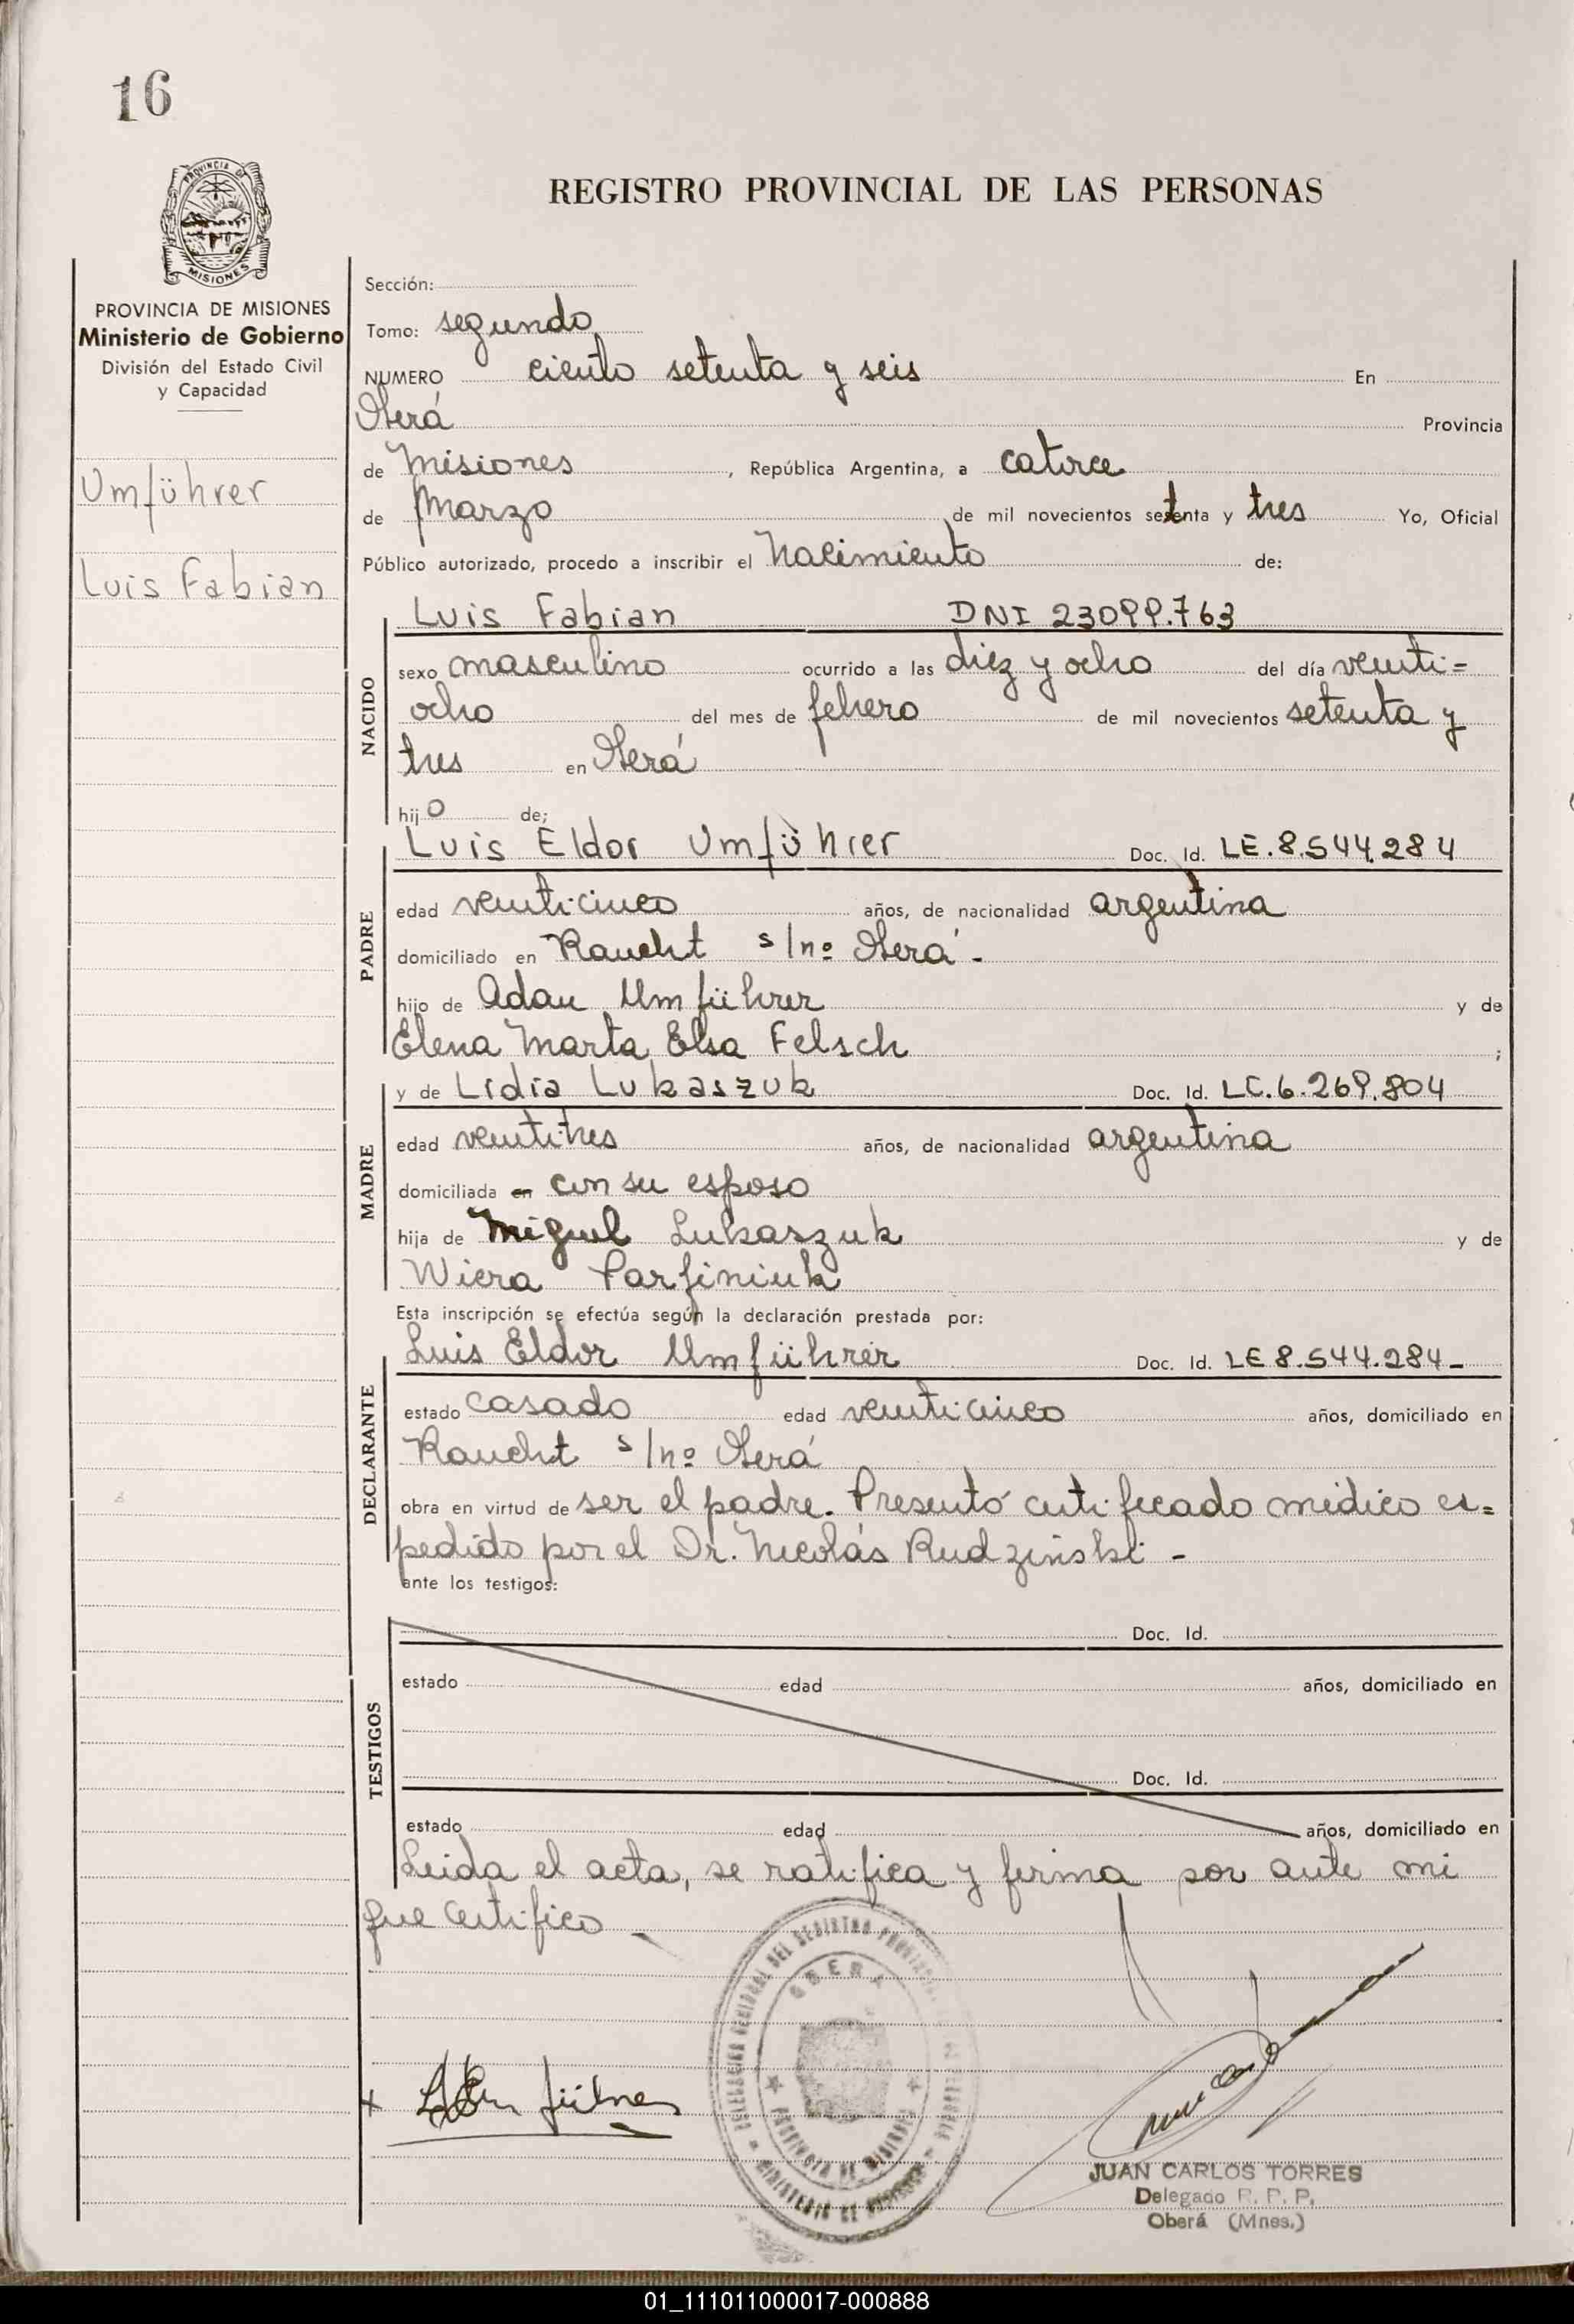 16
PROVINCIA DE
MISIONES
REGISTRO PROVINCIAL DE LAS PERSONAS
PROVINCIA DE MISIONES
Ministerio de Gobierno
División del Estado Civil
y Capacidad
Umführer
Luis Fabian
Sección:
Tomo: segundo
NUMERO ciento setenta y seis En
Oberá Provincia
de Misiones, República Argentina, a catorce
de Marzo de mil novecientos setenta y tres Yo, Oficial
Público autorizado, procedo a inscribir el Nacimiento de:
NACIDO
Luis Fabian DNI 23099.763
sexo masculino ocurrido a las diez y ocho del día veinti=
ocho del mes de febrero de mil novecientos setenta y
tres en Oberá
hijo de;
PADRE
Luis Eldor Umführer Doc. Id. LE.8.544.284
edad veinticinco años, de nacionalidad argentina
domiciliado en Raucht s/nº Oberá.-
hijo de Adan Umführer y de
Elena Marta Elsa Felsch ;
MADRE
y de Lidia Lukaszuk Doc. Id. LC.6.269.804
edad veintitres años, de nacionalidad argentina
domiciliada en con su esposo
hija de Miguel Lukaszuk y de
Wiera Parfiniuk
Esta inscripción se efectúa según la declaración prestada por:
DECLARANTE
Luis Eldor Umführer Doc. Id. LE 8.544.284-
estado casado edad veinticinco años, domiciliado en
Raucht s/nº Oberá
obra en virtud de ser el padre. Presentó certificado médico es=
pedido por el Dr. Nicolás Rudziñski -
ante los testigos:
TESTIGOS
Doc. Id.
estado edad años, domiciliado en
Doc. Id.
estado edad años, domiciliado en
Leida el acta, se ratifica y firma por ante mi
que certifico -
OBERA
PROVINCIA DE MISIONES
JUAN CARLOS TORRES
Delegado R. P. P.
Oberá (Mnes.)
01_111011000017-000888